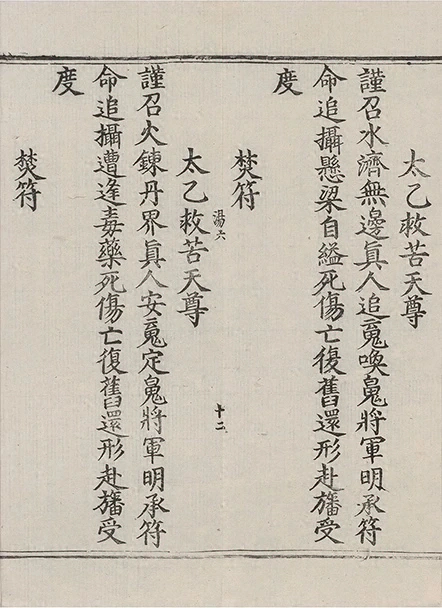 太乙救苦天尊
謹召水濟無邊眞人追䰟喚䰟將軍明承符
命追攝懸梁自縊死傷亡復舊還形赴旛受
度
焚符
湯六
十二
太乙救苦天尊
謹召火鍊丹界眞人安䰟定䰟將軍明承符
命追攝遭逢毒藥死傷亡復舊還形赴旛受
度
焚符